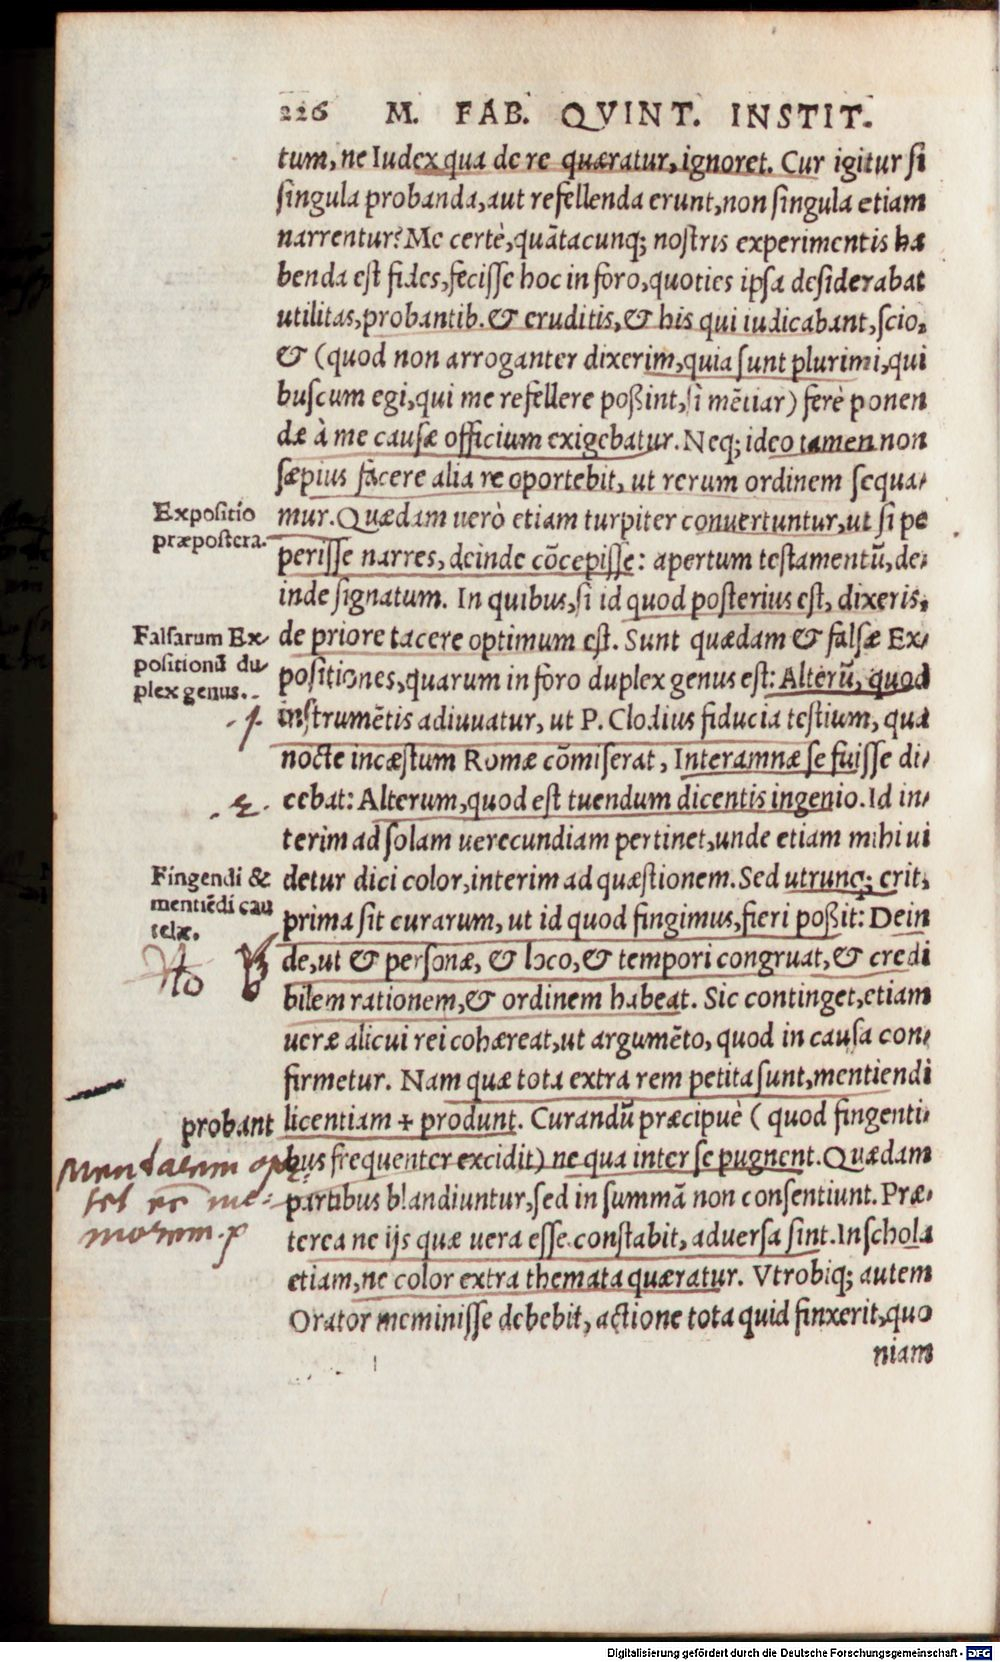 226 M. FAB. QVINT. INSTIT.
tum, ne Iudex qua de re quæratur, ignoret. Cur igitur ſi
ſingula probanda, aut refellenda erunt, non ſingula etiam
narrentur? Me certè, quãtacunq; noſtris experimentis ha
benda eſt fides, feciſſe hoc in foro, quoties ipſa deſiderabat
utilitas, probantib. & eruditis, & his qui iudicabant, ſcio,
& (quod non arroganter dixerim, quia ſunt plurimi, qui
buſcum egi, qui me refellere poßint, ſi mẽtiar) ferè ponen
dæ à me cauſæ officium exigebatur. Neq; ideo tamen non
ſæpius facere alia re oportebit, ut rerum ordinem ſequa-
Expoſitio
præpoſtera.
mur. Quædam uerò etiam turpiter conuertuntur, ut ſi pe
periſſe narres, deinde cõcepiſſe: apertum teſtamentũ, de-
inde ſignatum. In quibus, ſi id quod poſterius eſt, dixeris,
Falſarum Ex-
poſitionũ du-
plex genus.
de priore tacere optimum eſt. Sunt quædam & falſæ Ex-
poſitiones, quarum in foro duplex genus eſt: Alterũ, quod
1.
inſtrumẽtis adiuuatur, ut P. Clodius fiducia teſtium, qua
nocte incæſtum Romæ cõmiſerat, Interamnæ ſe fuiſſe di-
2.
cebat: Alterum, quod eſt tuendum dicentis ingenio. Id in-
terim ad ſolam uerecundiam pertinet, unde etiam mihi ui
Fingendi &
mentiẽdi cau
telæ.
detur dici color, interim ad quæſtionem. Sed utrunq; erit,
prima ſit curarum, ut id quod fingimus, fieri poßit: Dein
de, ut & perſonæ, & loco, & tempori congruat, & credi
bilem rationem, & ordinem habeat. Sic continget, etiam
ueræ alicui rei cohæreat, ut argumẽto, quod in cauſa con-
firmetur. Nam quæ tota extra rem petita ſunt, mentiendi
probant
licentiam + produnt. Curandũ præcipuè (quod fingenti-
Mendacem opor
tet eē me-
morem.
bus frequenter excidit) ne qua inter ſe pugnent. Quædam
partibus blandiuntur, ſed in ſummã non conſentiunt. Præ-
terea ne ijs quæ uera eſſe conſtabit, aduerſa ſint. In ſchola
etiam, ne color extra themata quæratur. Vtrobiq; autem
Orator meminiſſe debebit, actione tota quid finxerit, quo
niam
Digitalisierung gefördert durch die Deutsche Forschungsgemeinschaft - DFG